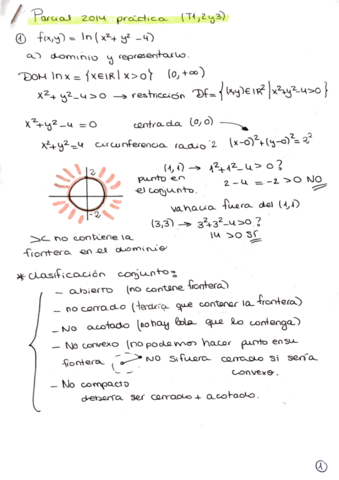 Parcial 2014 práctica (T1,2y3)
① f(x,y) = ln(x²+ y² -4)
a) dominio y representarlo.
DOM lnx = {x∈IR | x>0} (0,+∞)
x²+y²-4>0 → restricción Df= {(x,y)∈IR² | x²+y²-4>0}
x²+y²-4=0 centrada (0,0)
x²+y²=4 circunferencia radio 2 (x-0)²+(y-0)²=2²
2
-2
(1,1) → 1²+1²-4>0?
punto en el conjunto. 2-4=-2>0 NO
vahacia fuera del (1,1)
(3,3) → 3²+3²-4>0?
14>0 SÍ
>< no contiene la
frontera en el dominio
* clasificación conjunto:
- abierto (no contiene frontera)
- no cerrado (tendría que contener la frontera)
- NO acotado (no hay bola que lo contenga)
- No convexo (no podemos hacer punto en su
frontera NO si fuera cerrado si sería
convexo.
- No compacto
debería ser cerrado + acotado.
①